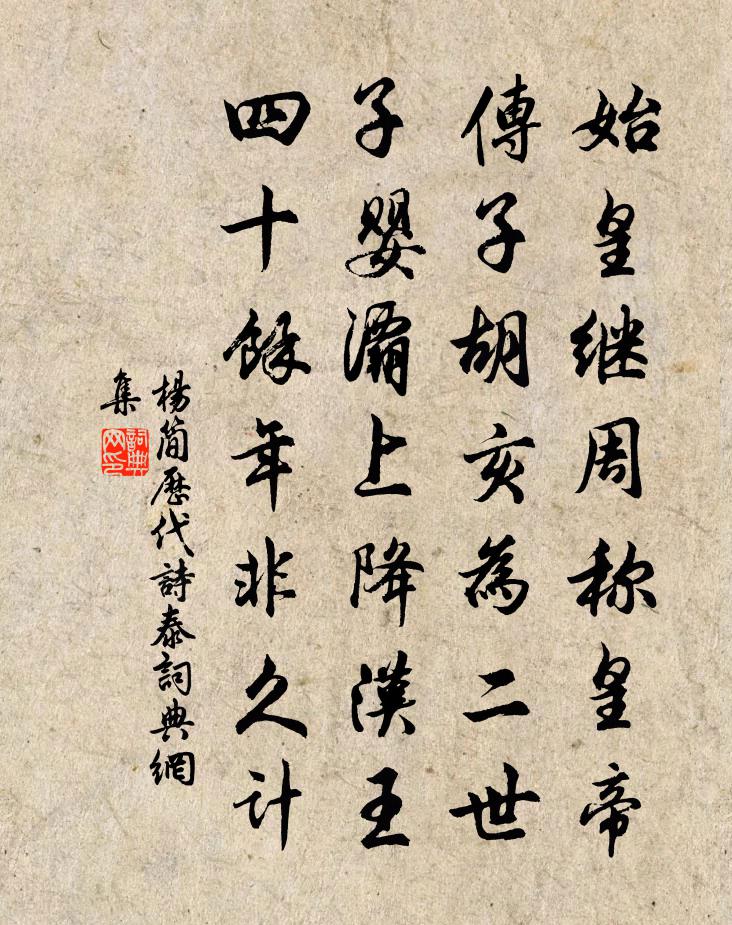 始皇继周称皇帝
傳子胡亥為二世
子嬰灞上降漢王
四十餘年非久计
楊簡歷代詩泰詞典網
集
詞典
网印